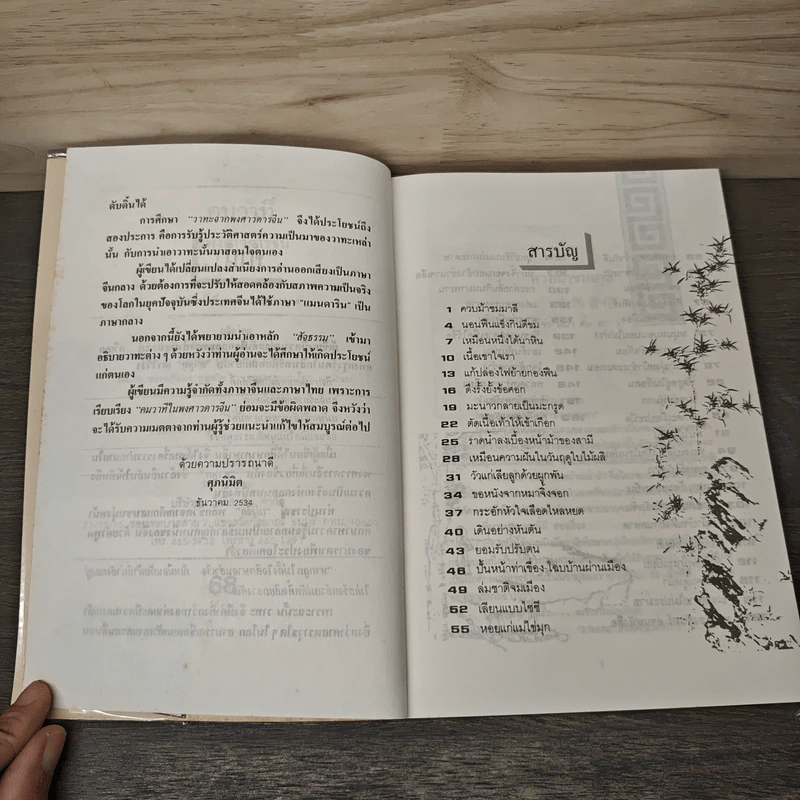 ดับดิ้นได้
การศึกษา "วาทะจากพงศาวดารจีน" จึงได้ประโยชน์ถึง
สองประการ คือการรับรู้ประวัติศาสตร์ความเป็นมาของวาทะเหล่า
นั้น กับการนำเอาวาทะนั้นมาสอนใจตนเอง
ผู้เขียนได้เปลี่ยนแปลงสำเนียงการอ่านออกเสียงเป็นภาษา
จีนกลาง ด้วยต้องการที่จะปรับให้สอดคล้องกับสภาพความเป็นจริง
ของโลกในยุคปัจจุบันซึ่งประเทศจีนได้ใช้ภาษา "แมนดาริน" เป็น
ภาษากลาง
นอกจากนี้ยังได้พยายามนำเอาหลัก "สัจธรรม" เข้ามา
อธิบายวาทะต่างๆ ด้วยหวังว่าท่านผู้อ่านจะได้ศึกษาให้เกิดประโยชน์
แก่ตนเอง
ผู้เขียนมีความรู้จำกัดทั้งภาษาจีนและภาษาไทย เพราะการ
เรียบเรียง "คมวาทีในพงศาวดารจีน" ย่อมจะมีข้อผิดพลาด จึงหวังว่า
จะได้รับความเมตตาจากท่านผู้รู้ช่วยแนะนำแก้ไขให้สมบูรณ์ต่อไป
ด้วยความปรารถนาดี
ศุภนิมิต
ธันวาคม 2534
สารบัญ
1 ควบม้าชมมาลี
4 นอนฟืนแข็งกินดีขม
7 เหมือนหนึ่งได้นาหิน
10 เนื้อเขาใจเรา
13 แก้ปล่องไฟย้ายกองฟืน
16 ดึงรั้งยั้งข้อศอก
19 มะนาวกลายเป็นมะกรูด
22 ตัดเนื้อเท้าให้เข้าเกือก
25 ราดน้ำลงเบื้องหน้าม้าของสามี
28 เหมือนความฝันในวันฤดูใบไม้ผลิ
31 วัวแก่เลียลูกด้วยผูกพัน
34 ขอหนังจากหมาจิ้งจอก
37 กระอักหัวใจเลือดไหลหยด
40 เดินอย่างหันตัน
43 ยอมรับปรับตน
46 ปั้นหน้าทำเชื่อง·โฉบบ้านผ่านเมือง
49 ล่มชาติจมเมือง
52 เลียนแบบไซซี
55 หอยแก่แม่ไข่มุก